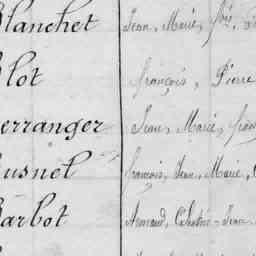 Blanchet Jean, Marie,
Blot françois, Pierre
erranger Jean, Marie,
usnel françois, Jean, Marie,
Barbot Armand, Célestin - Jean